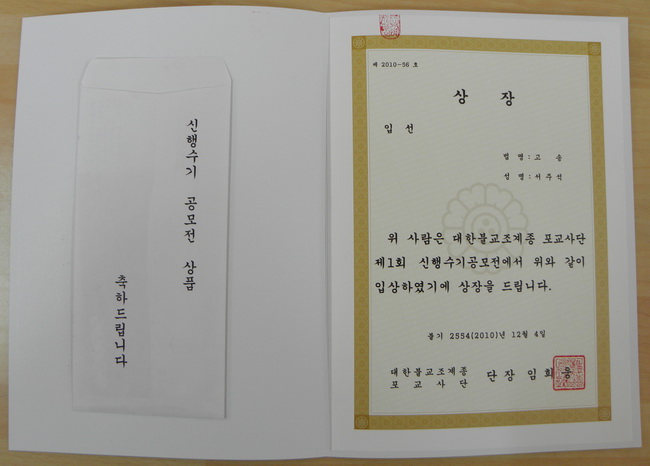 신행수기 공모전 상품
축하드립니다
제 2010-56 호
상 장
입 선
법 명:고 송
성 명:서주석
위 사람은 대한불교조계종 포교사단
제1회 신행수기공모전에서 위와 같이
입상하였기에 상장을 드립니다.
불기 2554(2010)년 12월 4일
대한불교조계종
포 교 사 단
단장 임희웅